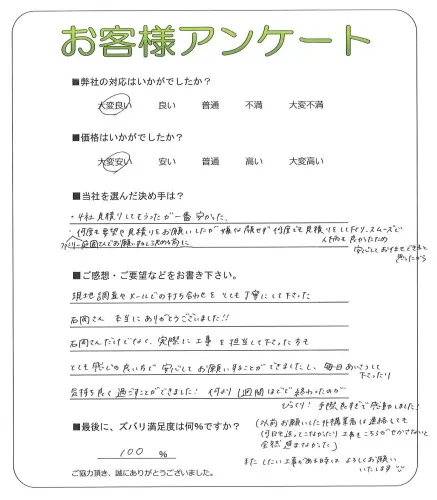 お客様アンケート
■弊社の対応はいかがでしたか？
大変良い　良い　普通　不満　大変不満
■価格はいかがでしたか？
大変安い　安い　普通　高い　大変高い
■当社を選んだ決め手は？
・4社見積りしてもらったが一番安かった。
・何度も要望や見積りをお願いしたが嫌な顔せず何度でも見積りをして下さり、スムーズで
お願いすると決める前に
人柄も良かったため
安心しておまかせできると
思ったから
■ご感想・ご要望などをお書き下さい。
現地調査やメールでの打ち合わせをとても丁寧にして下さった
石岡さん　本当にありがとうございました!!
石岡さんだけでなく、実際に工事を担当して下さった方も
とても感じの良い方で安心してお願いすることができましたし、毎日あいさつして
下さったり
気持ち良く過ごすことができました！何より1週間ほどで終わったのが
びっくり！手際良すぎで感動しました！
■最後に、ズバリ満足度は何%ですか？
100　%
(以前お願いした外構業者は連絡しても
何日も返ってこなかったり工事もこちらがせかさないと
全然進まなかった)
またしたい工事がある時はよろしくお願い
いたします
ご協力頂き、誠にありがとうございました。